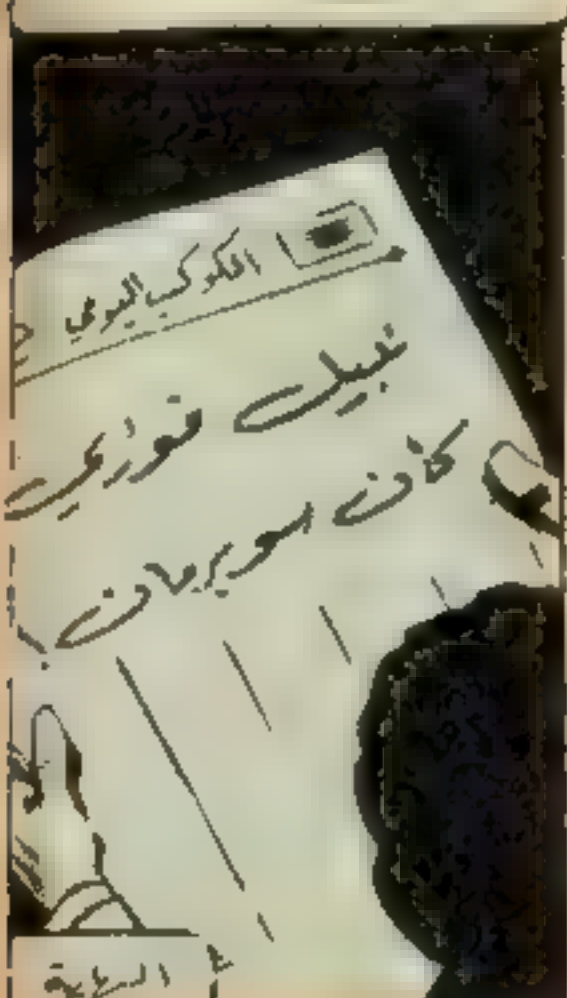 الكوكب اليومي
نبيل فوزي
كان سوبرمان
النهاية